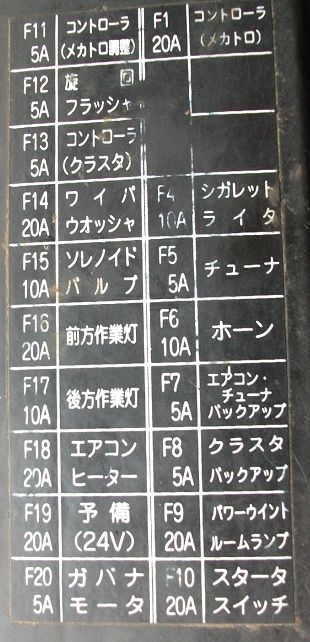 F11 コントローラ F1 コントローラ
5A (メカトロ調整) 20A (メカトロ)
F12 旋 回
5A フラッシャ
F13 コントローラ
5A (クラスタ)
F14 ワイパ F4 シガレット
20A ウオッシャ 10A ライタ
F15 ソレノイド F5 チューナ
10A バルブ 5A
F16 前方作業灯 F6 ホーン
20A 10A
F17 後方作業灯 F7 エアコン・
チューナ
10A 5A バックアップ
F18 エアコン F8 クラスタ
20A ヒーター 5A バックアップ
F19 予備 F9 パワーウイント
20A (24V) 20A ルームランプ
F20 ガバナ F10 スタータ
5A モータ 20A スイッチ